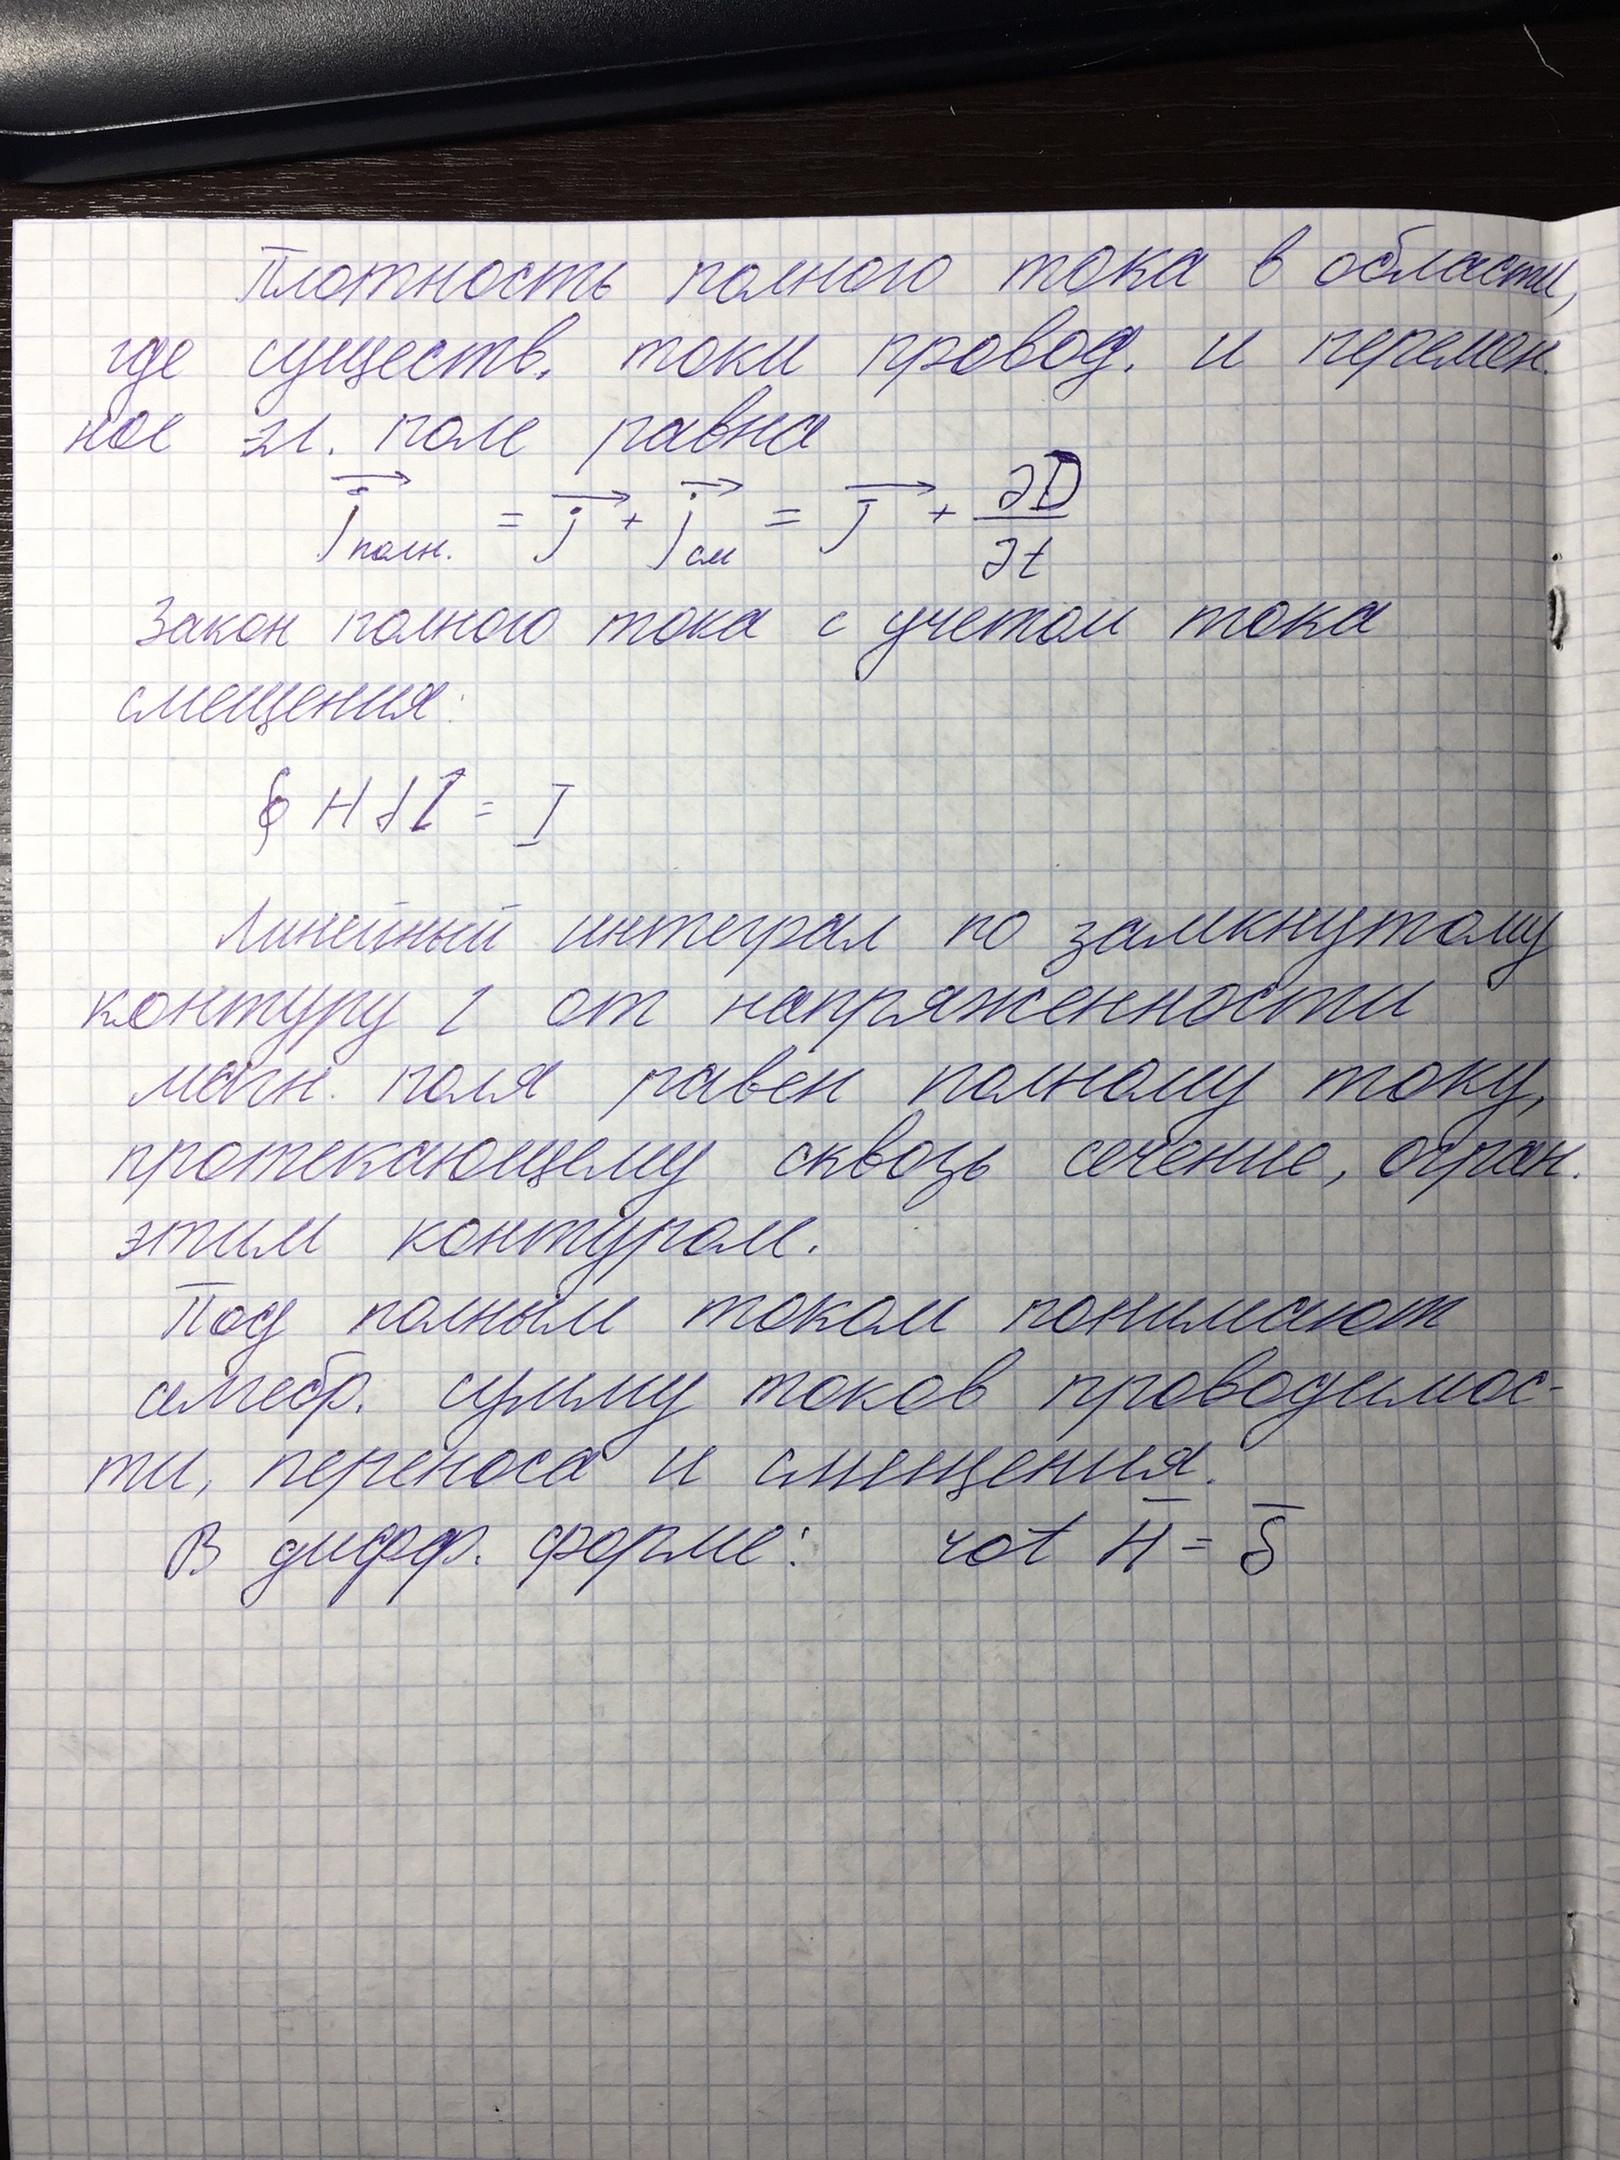 Плотность полного тока в области,
где существ. токи провод. и перемен.
ное эл. поле равна
j⃗полн. = j⃗ + j⃗см = j⃗ + ∂D/∂t
Закон полного тока с учетом тока
смещения:
∮ H dl = I
Линейный интеграл по замкнутому
контуру l от напряженности
магн. поля равен полному току,
протекающему сквозь сечение, огран.
этим контуром.
Под полным током понимают
алгебр. сумму токов проводимос-
ти, переноса и смещения.
В дифф. форме: rot H̅ = δ̅